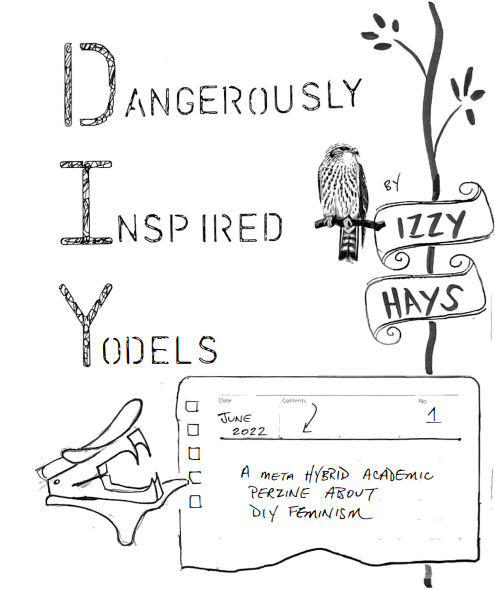 DANGEROUSLY
INSPIRED
YODELS
BY
IZZY
HAYS
Date
Contents
No
JUNE
2022
1
A META HYBRID ACADEMIC
PERZINE ABOUT
DIY FEMINISM